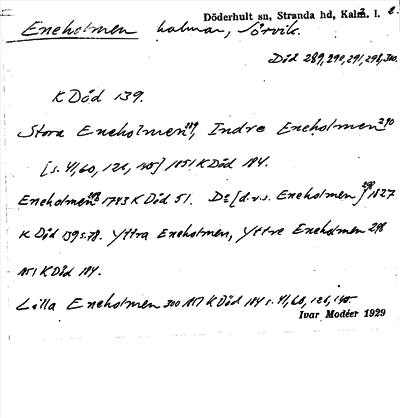 Döderhult sn, Stranda hd, Kalm. l.
Eneholmen holmar, Sörvik.
Död 289, 290, 291, 298, 300.
K Död 139.
Stora Eneholmen 289, Indre Eneholmen 290
[s. 41, 60, 126, 145] 1851 K Död 184.
Eneholmen 1783 K Död 51. De [d.v.s. Eneholmen] 298 1827
K Död 139 s. 78. Yttra Eneholmen, Yttre Eneholmen 298
1851 K Död 184.
Lilla Eneholmen 300 1851 K Död 184 s. 41, 60, 126, 145
Ivar Modéer 1929